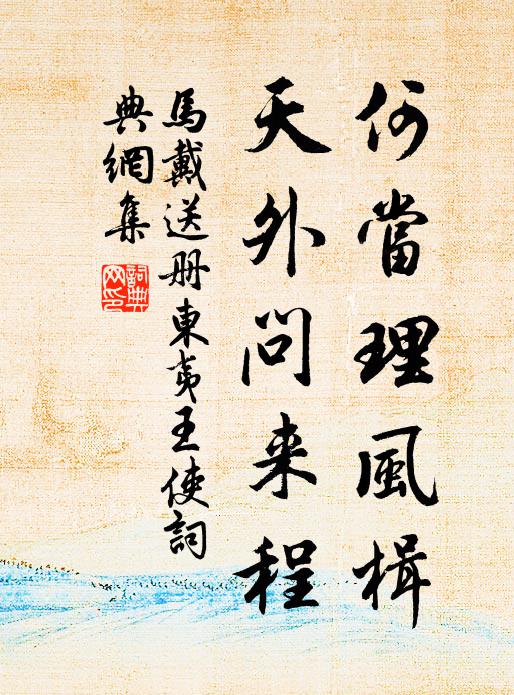 何當理風楫
天外問来程
馬戴送册東夷王使詞
典網集
詞典网印